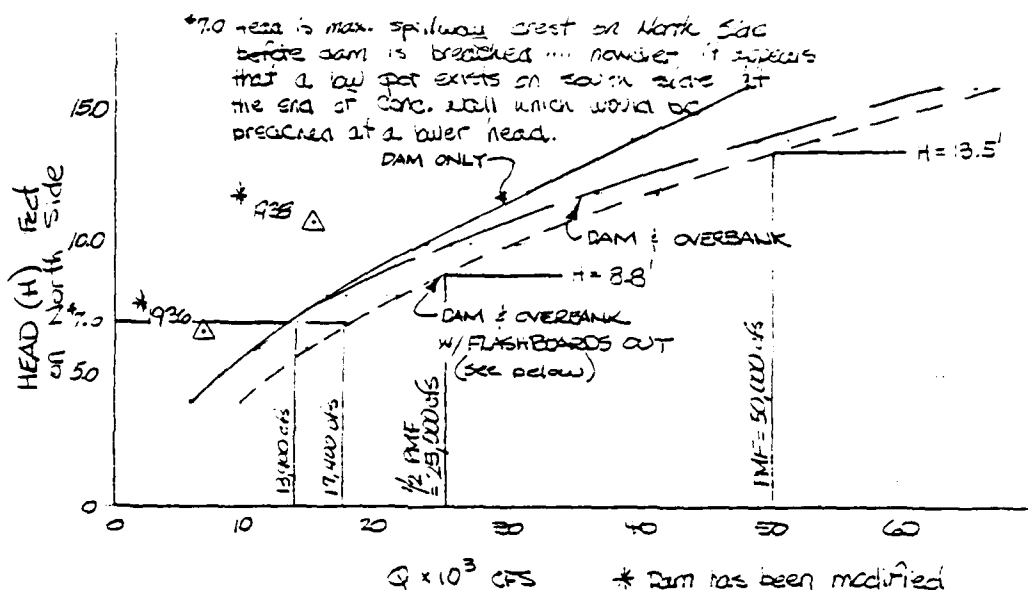 *7.0 Head is max. spillway crest on North Side
before dam is breached .... however it appears
that a low spot exists on south side at
the end of conc. wall which would be
breached at a lower head.
15.0
DAM ONLY
H = 13.5'
* 1938
10.0
DAM & OVERBANK
H = 8.8'
HEAD (H) Feet
on North Side
* 1936
*7.0
DAM & OVERBANK
W/ FLASHBOARDS OUT
(see below)
5.0
13,900 cfs
17,400 cfs
1/2 PMF
= 25,000 cfs
PMF = 50,000 cfs
0
0 10 20 30 40 50 60
Q x 10³ CFS
* Dam has been modified